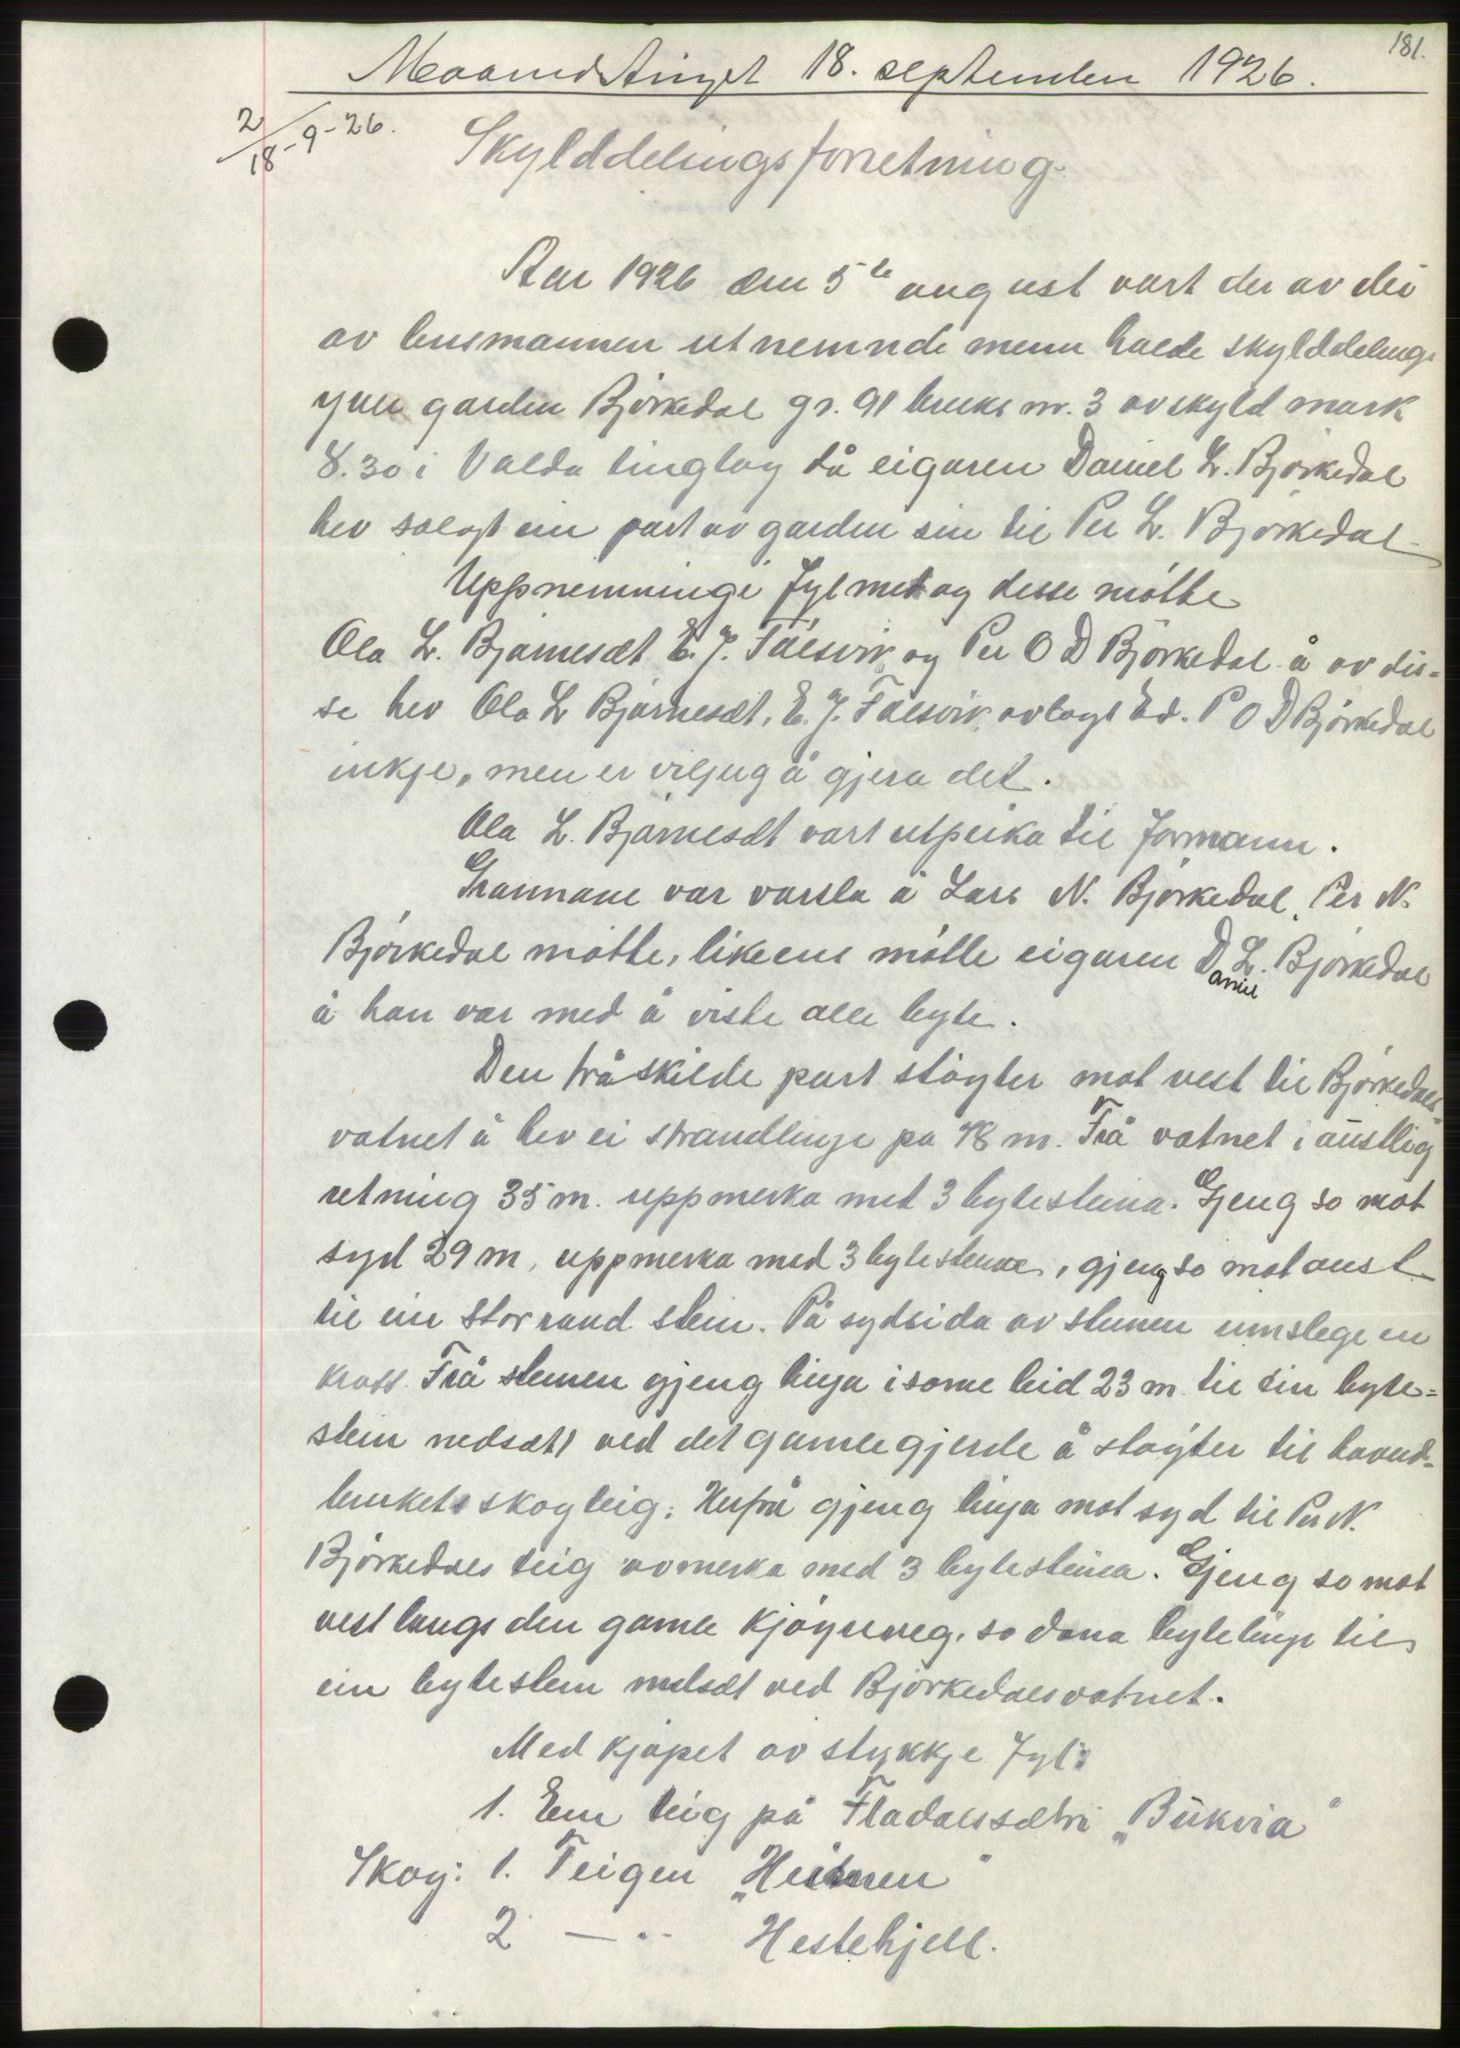 181.
Maanedstinget 18. september 1926.
2/18-9-26.
Skylddelingsforretning.
Aar 1926 den 5te august vart der av dei
av lensmannen utnemnde menn halde skylddeling
yver garden Björkedal gr. 91 bruks nr. 3 av skyld mark
8.30 i Valda tinglag då eigaren Daniel L. Björkedal
hev solgt ein part av garden sin til Per L. Björkedal
Uppnemningi fyl med og desse mötte
Ola L. Bjarnesæt, E. J. Fälsvik og Per O D Björkedal å av dis=
se hev Ola L Bjarnesæt, E. J. Fälsvik avlagt Ed. P O D Björkedal
inkje, men er viljug å gjera det.
Ola L. Bjarnesæt vart utpeika til formann.
Grannane var varsla å Lars N. Björkedal, Per N.
Björkedal mötte, likeens mötte eigaren Daniel L. Björkedal
å han var med å viste alle byte.
Den fråskilde part stöyter mot vest til Björkedals
vatnet å hev ei strandlinje på 48 m. Frå vatnet i austlig
retning 35 m. uppmerka med 3 bytesteina. Gjeng so mot
syd 29 m, uppmerka med 3 bytesteina, gjeng so mot aust
til ein stor rand stein. På sydsida av steinen innslege en
kross. Frå steinen gjeng linja i same leid 23 m. til ein byte=
stein nedsatt ved det gamle gjerde å stöyter til hovud-
brukets skogteig. Herfrå gjeng linja mot syd til Per N.
Björkedals teig avmerka med 3 bytesteina. Gjeng so mot
vest langs den gamle Kjöyreveg, so dana bytelinje til
ein bytestein nedsat ved Björkedalsvatnet.
Med kjöpet av stykkje fyl:
1. Ein teig på Fladalssætri „Bukvia"
Skog: 1. Teigen „Heimren"
2 — " — Hestehjell.